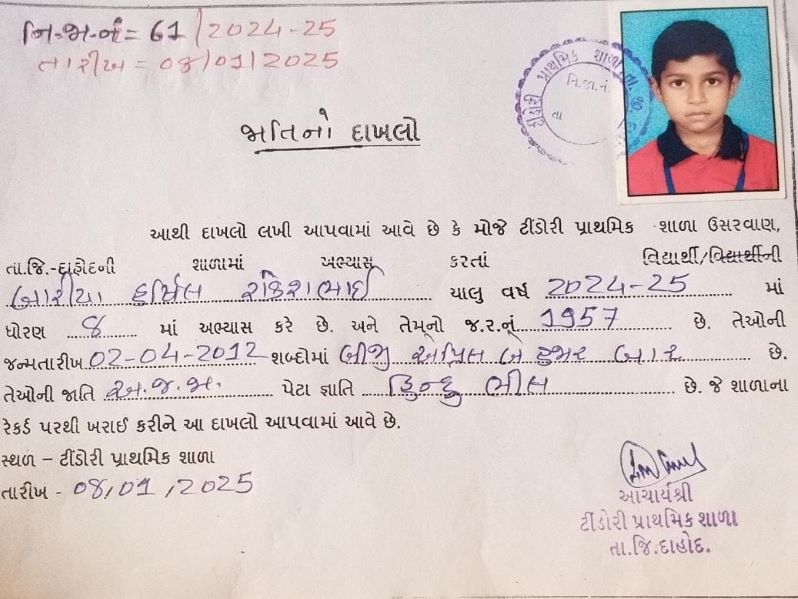 નિ.જા.નં = 61/2024-25
તારીખ = 08/01/2025
ટીંડોરી પ્રાથમિક શાળા તા.જી.
નિ.જા.નં.
તા
જાતિનો દાખલો
આથી દાખલો લખી આપવામાં આવે છે કે મોજે ટીંડોરી પ્રાથમિક શાળા ઉસરવાણ,
તા.જિ.-દાહોદની શાળામાં અભ્યાસ કરતાં વિદ્યાર્થી/વિદ્યાર્થીની
બારીયા હર્ષિલ રાકેશભાઈ ચાલુ વર્ષ 2024-25 માં
ધોરણ 8 માં અભ્યાસ કરે છે. અને તેમનો જ.ર.નું 1957 છે. તેઓની
જન્મતારીખ 02-04-2012 શબ્દોમાં બીજી એપ્રિલ બે હજાર બાર છે.
તેઓની જાતિ અ.જ.જા. પેટા જ્ઞાતિ હિન્દુ ભીલ છે. જે શાળાના
રેકર્ડ પરથી ખરાઈ કરીને આ દાખલો આપવામાં આવે છે.
સ્થળ – ટીંડોરી પ્રાથમિક શાળા
તારીખ - 08/01/2025
આચાર્યશ્રી
ટીંડોરી પ્રાથમિક શાળા
તા.જિ.દાહોદ.